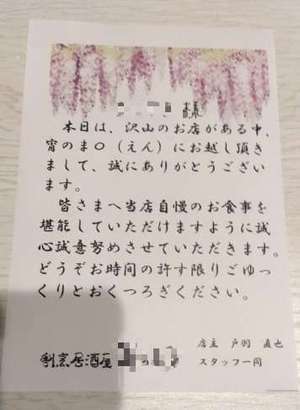 様
本日は、沢山のお店がある中、
宵のま○（えん）にお越し頂き
まして、誠にありがとうござい
ます。
皆さまへ当店自慢のお食事を
堪能していただけますように誠
心誠意努めさせていただきます。
どうぞお時間の許す限りごゆっ
くりとおくつろぎください。
店主 戸羽 直也
割烹居酒屋
スタッフ一同